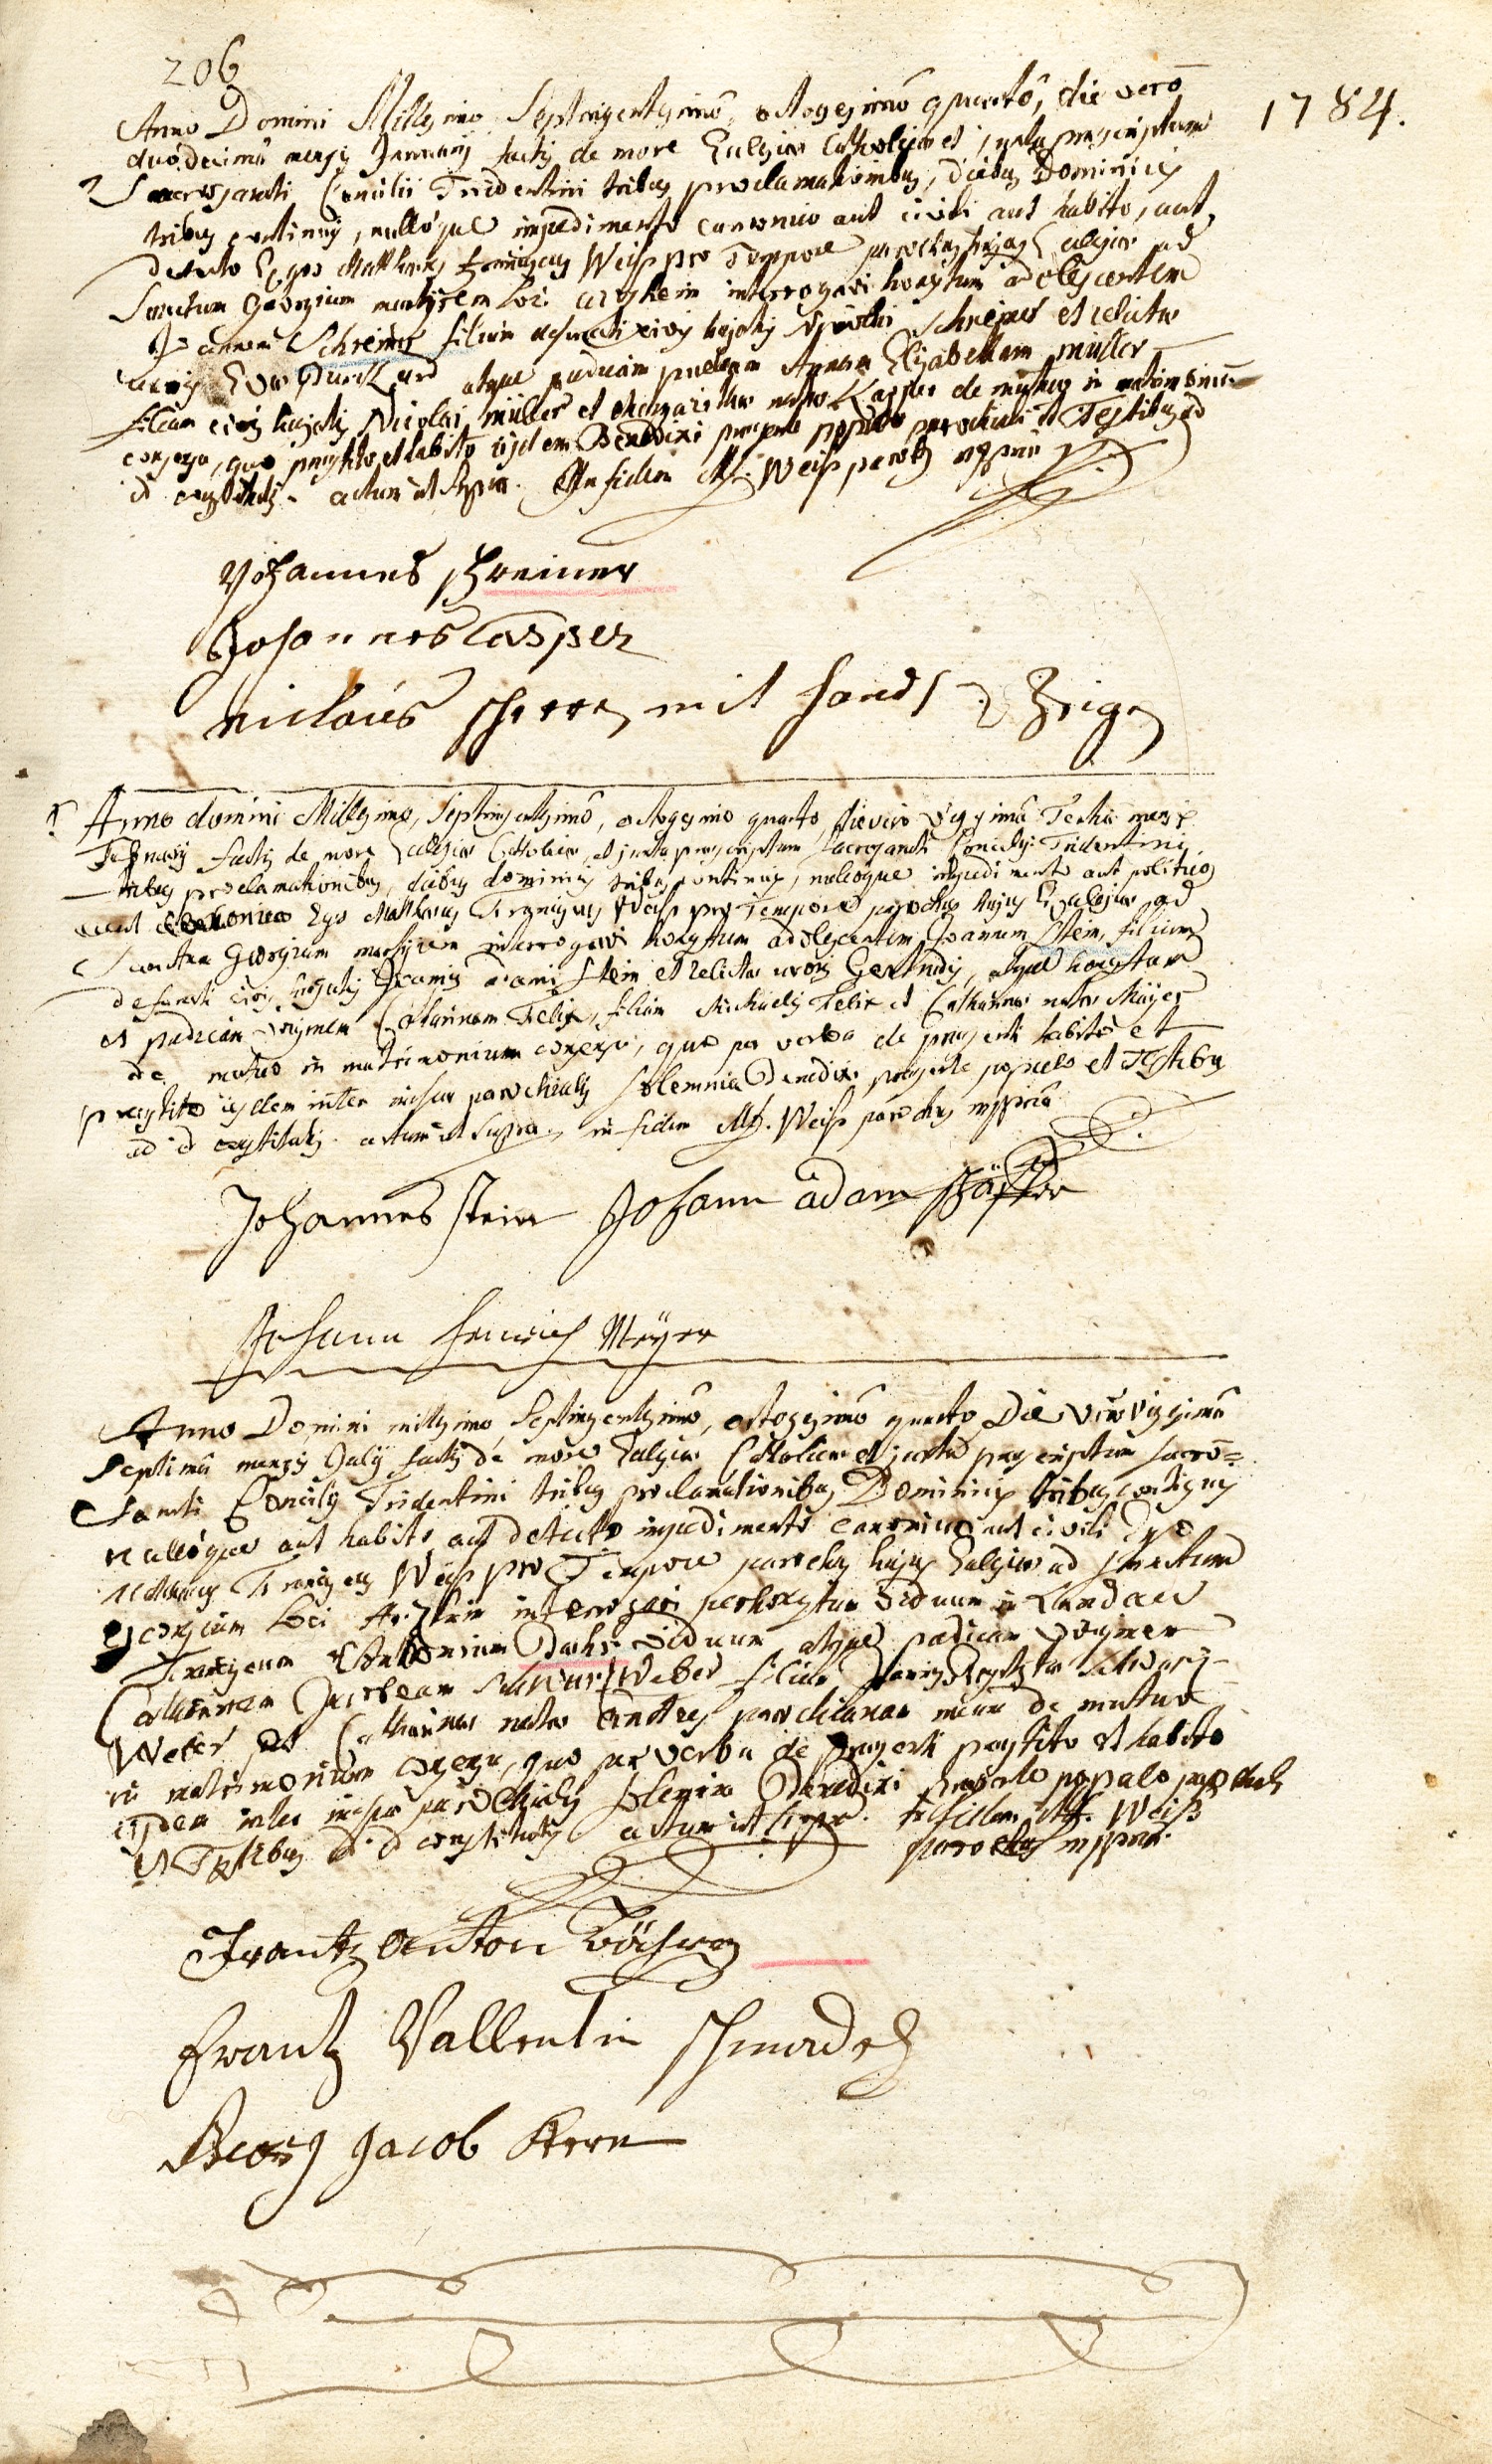 206
1784.
Anno Domini Millesimo Septingentesimô, octogesimô quartô, die verô
duodecimâ mensis Januarij factis de more Ecclesiæ Catholicæ et juxta præscriptum
Sacrosancti Concilii Tridentini tribus proclamationibus, diebus Dominicis
tribus continuis, nullôque impedimento canonico aut civili aut habito, aut
detecto Ego Matthæus Franciscus Weiss pro Tempore parochus hujus Ecclesiæ ad
Sanctum Georgium martyrem loci interrogavi honestum adolescentem
Joannem Schreiner filium defuncti civis hujatis Schreiner et relictæ
uxoris Evæ Burckard atque pudicam puellam Annam Elisabetham müller
filiam civis hujatis Nicolai müller et Margarithæ natæ Kasper de mutuo in matrimonium
consensu, quo præstito et habito iisdem Benedixi præsente populo parochiali et Testibus ad
id constitutis. actum ut supra. In fidem M. F. Weiss parochus mppria
Johannes schreiner
Johannes Casper
nicklaus scherrer mit hands Zeigen
Anno domini Millesimo, Septingentesimô, octogesimo quarto, die vero vigesimâ Tertiâ mensis
Februarij factis de more Ecclesiæ Catholicæ, et juxta præscriptum Sacrosancti Concilij Tridentini
tribus proclamationibus, diebus dominicis tribus continuis, nulloque impedimento aut politico
aut canonico Ego Matthæus Franciscus Weiss pro Tempore parochus hujus Ecclesiæ ad
Sanctum Georgium martyrem interrogavi honestum adolescentem Joannem Stein, filium
defuncti civis hujatis Joannis adami Stein et relictæ uxoris Gertrudis, atque honestam
et pudicam virginem Catharinam Felix, filiam Michaelis Felix et Catharinæ natæ Mäyer
de mutuo in matrimonium consensu, quo per verba de præsenti habito et
præstito iisdem inter missæ parochialis solemnia Benedixi præsente populo et Testibus
ad id constitutis. actum ut supra. in fidem M. F. Weiss parochus mppria
Johannes stein Johann adam schäffer
Johann Henrich Meyer
Anno Domini millesimo, Septingentesimô, octogesimô quarto Die verô vigesimâ
Septimâ mensis Julij factis de more Ecclesiæ Catholicæ et juxta præscriptum sacro=
Sancti Concilij Tridentini tribus proclamationibus Dominicis tribus contiguis
nullôque aut habito aut detecto impedimentô canonico aut civili Ego
Matthæus Franciscus Weiss pro Tempore parochus hujus Ecclesiæ ad Sanctum
georgium loci interrogavi perhonestum viduum in Landau
Franciscum Antonium viduum, atque pudicam virginem
Catharinam Jacobeam Schwartzweber filiam Schwartz-
weber et Catharinæ natæ Andres parochianam meam de mutuo
in matrimonium consensu, quo per verba de præsenti præstito et habito
iisdem inter missæ parochialis solemnia Benedixi præsente populo parochiali
et Testibus ad id constitutis actum ut supra. In fidem M. F. Weiss
parochus mppria.
Frantz anton
Frantz Vallentin
Georg Jacob Kern